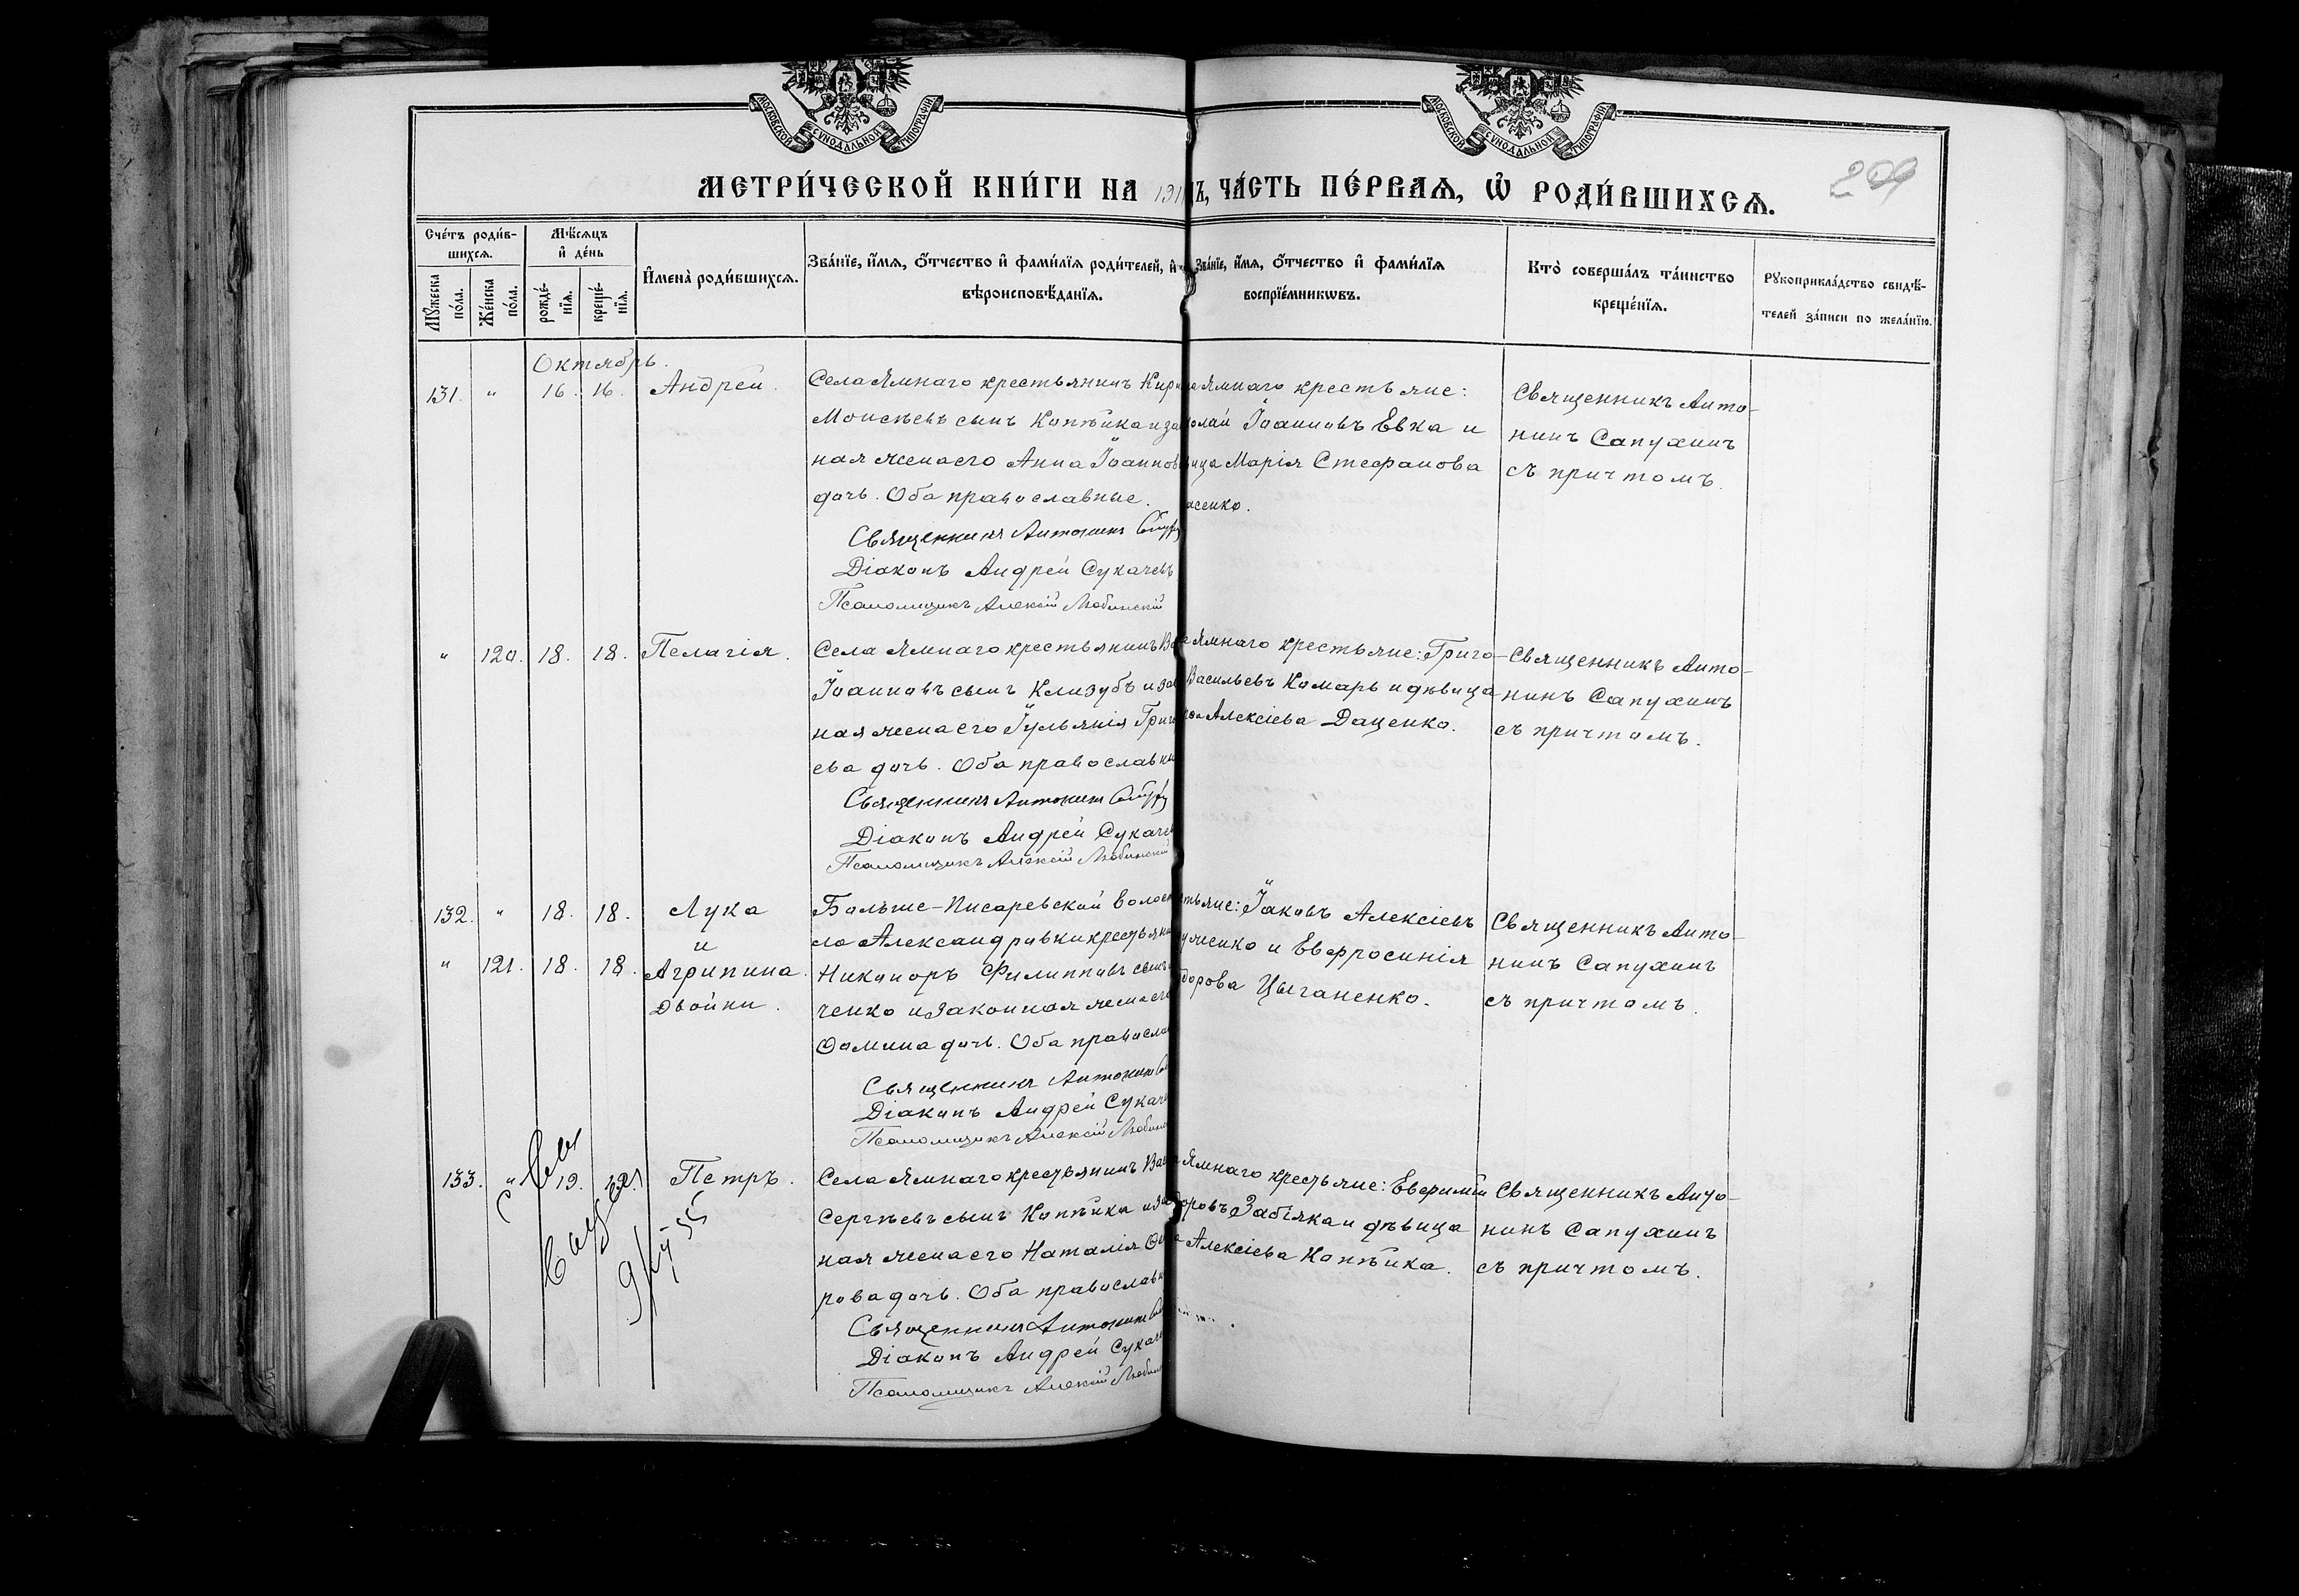 МОСКОВСКОЙ СѴНОДАЛЬНОЙ ТИПОГРАФІИ
МОСКОВСКОЙ СѴНОДАЛЬНОЙ ТИПОГРАФІИ
МЕТРИ́ЧЕСКОЙ КНИ́ГИ НА 191 Ъ, ЧА́СТЬ ПЕ́РВАѦ, Ѽ РОДИ́ВШИХСѦ.
209
Сче́тъ роди́в-
шихсѧ.
Мꙋ́жеска по́ла.
Же́нска по́ла.
Мѣ́сѧцъ
и҆ де́нь
рожде́-нїѧ.
креще́-нїѧ.
И҆мена̀ роди́вшихсѧ.
Зва́нїе, и҆́мѧ, ѻ҆́тчество и҆ фами́лїѧ роди́телей, и҆
вѣроисповѣ́данїѧ.
Зва́нїе, и҆́мѧ, ѻ҆́тчество и҆ фами́лїѧ
воспрїе́мникѡвъ.
Кто̀ соверша́лъ та́инство
креще́нїѧ.
Рꙋкоприкла́дство свидѣ́-
телей за́писи по жела́нїю.
Октябрь.
131. " 16. 16. Андрей.
Села Ямнаго крестьянинъ Кир
Моисѣевъ сынъ Копѣйка и за
ная жена его Анна Іоаннов
дочь. Оба православные.
Священникъ Антонинъ
Діаконъ Андрей Сукачевъ
Псаломщикъ Алексій Любинскій
Ямнаго крестьяне:
колай Іоанновъ Евка и
вица Марія Стефанова
асенко.
Священникъ Анто-
нинъ Сапухинъ
съ причтомъ.
" 120. 18. 18. Пелагія.
Села Ямнаго крестьянинъ Ва
Іоанновъ сынъ Клизубъ и зак
ная жена его Іульянія Григо
ева дочь. Оба православны
Священникъ Антонинъ
Діаконъ Андрей Сукаче
Псаломщикъ Алексій Любинскій
Ямнаго крестьяне: Григо-
Васильевъ Комаръ и дѣвица
Алексіева Даценко.
Священникъ Анто-
нинъ Сапухинъ
съ причтомъ.
132. " 18. 18. Лука
и
" 121. 18. 18. Агрипина.
Двойни.
Больше-Писаревской волост
ла Александровки крестьяни
Никаноръ Филипповъ сынъ
ченко и законная жена его
Ѳомина дочь. Оба правосла
Священникъ Антонинъ
Діаконъ Андрей Сукаче
Псаломщикъ Алексій Любин
тьяне: Іаковъ Алексіевъ
уженко и Евфросинія
дорова Цыганенко.
Священникъ Анто-
нинъ Сапухинъ
съ причтомъ.
133. " 19. Петръ.
Села Ямнаго крестьянинъ Ва
Сергѣевъ сынъ Копѣйка и за
ная жена его Наталія
рова дочь. Оба православн
Священникъ Антонинъ
Діаконъ Андрей Сукаче
Псаломщикъ Алексій Любин
Ямнаго крестьяне: Евфимій
оровъ Забіяка и дѣвица
Алексіева Копѣйка.
Священникъ Анто-
нинъ Сапухинъ
съ причтомъ.